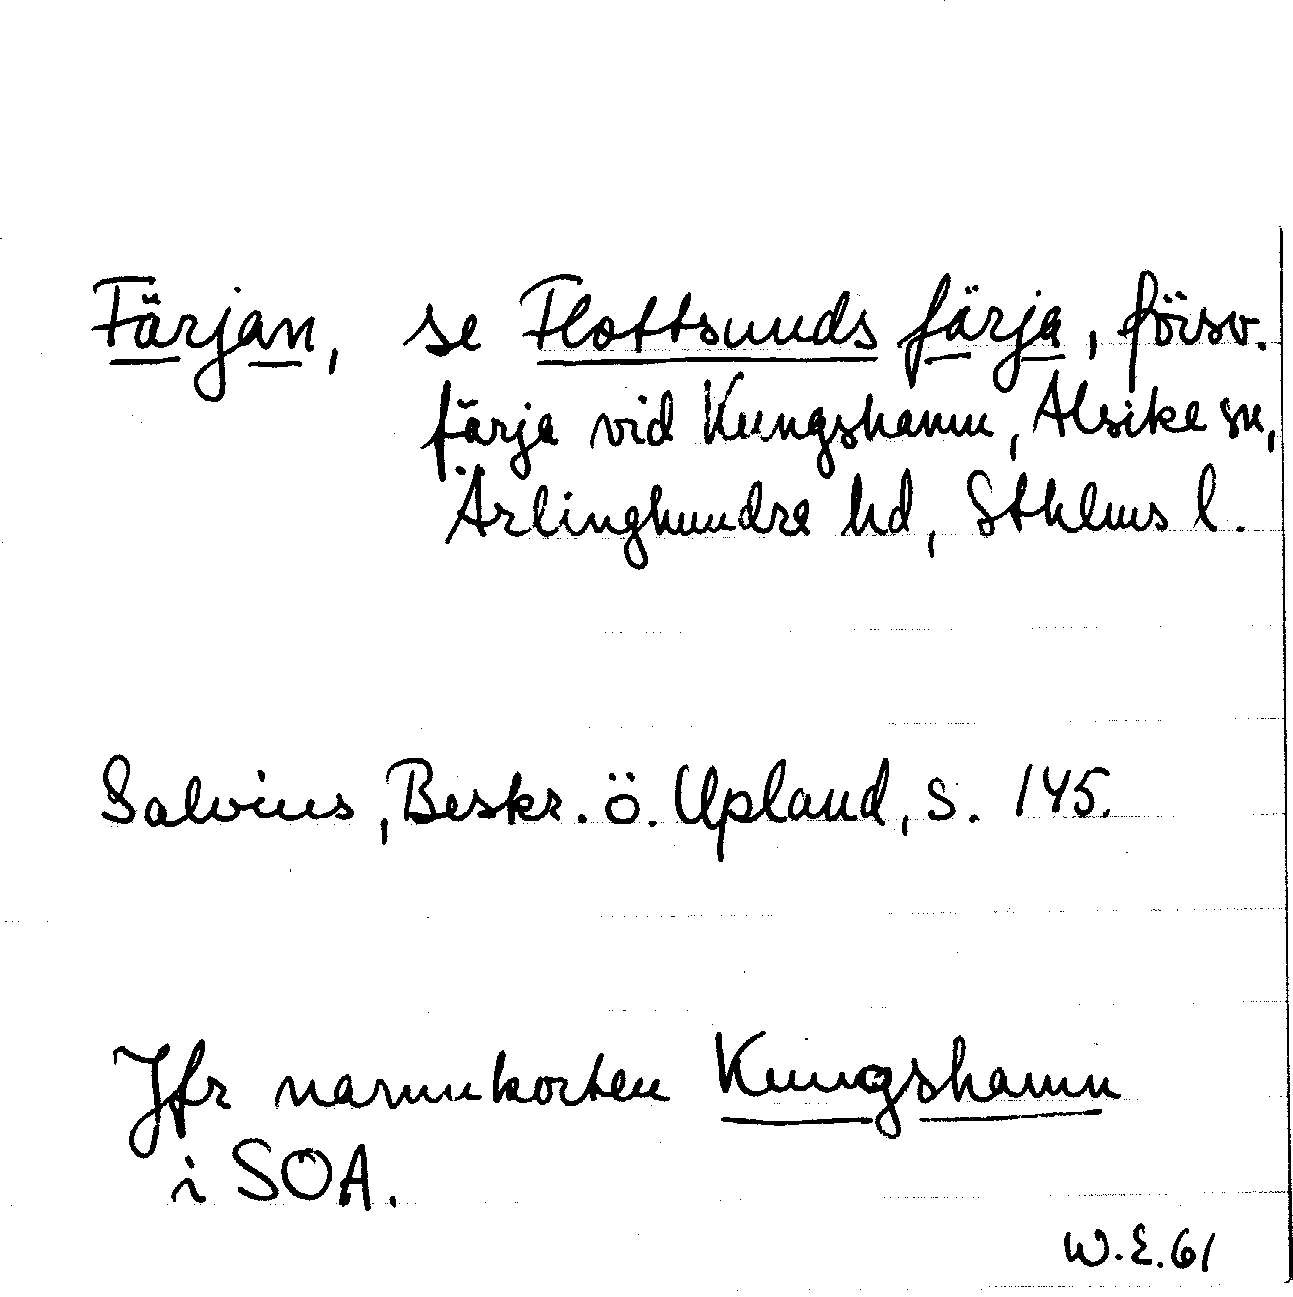 Färjan, se Flottsunds färja, försv.
färja vid Kungshamn, Alsike sn,
Ärlinghundra hd, Sthlms l.
Salvius, Beskr. ö. Upland, s. 145.
Jfr namnkorten Kungshamn
i SOA.
W.E.61